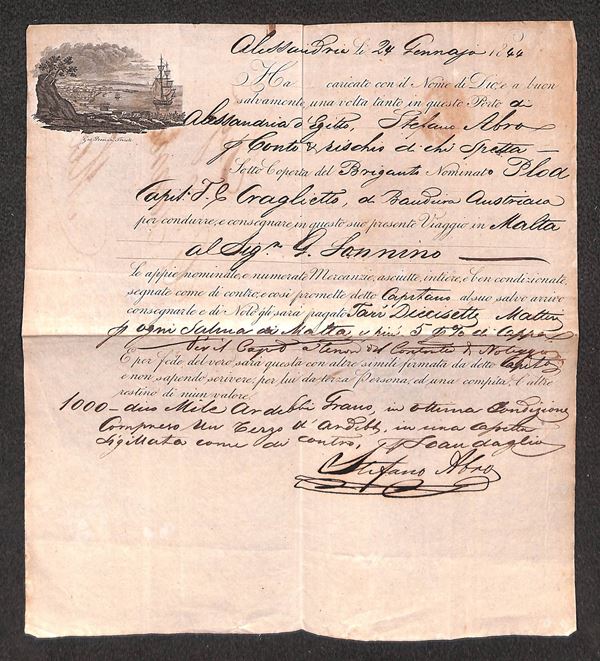 Alessandria Li 24 Gennajo 1844
Ha caricato con il Nome di Dio, e a buon
salvamento, una volta tanto in questo Porto di
Alessandria d'Egitto, Stefano Abro
p Conto & rischio di chi spetta —
Sotto Coperta del Brigantº Nominatº Plod
Capit. T. C. Craglietto, di Bandiera Austriaca
per condurre, e consegnare in questo suo presente Viaggio in Malta
al Sigr. G. Sonnino
le appie nominate, e numerate Mercanzie, asciutte, intiere, e ben condizionate,
segnate come di contro, e così promette detto Capitano al suo salvo arrivo
consegnarle e di Nolo gli sarà pagato Tari Diecisette Maltesi
p ogni Salma di Malta e più 5 p% di Cappa
al Capº a tenor del Contratto di Noleggio
E per fede del vero sarà questa con altre simili firmata da detto Capitº
e non sapendo scrivere, per lui da terza Persona, ed una compita, l'altre
restino di niun valore.
1000 – due Mile Ardebbi Grano, in ottima Condizione
Compreso Un Terzo d'Ardebb, in una Capetta
Sigillata come di contro,
Stefano Abro